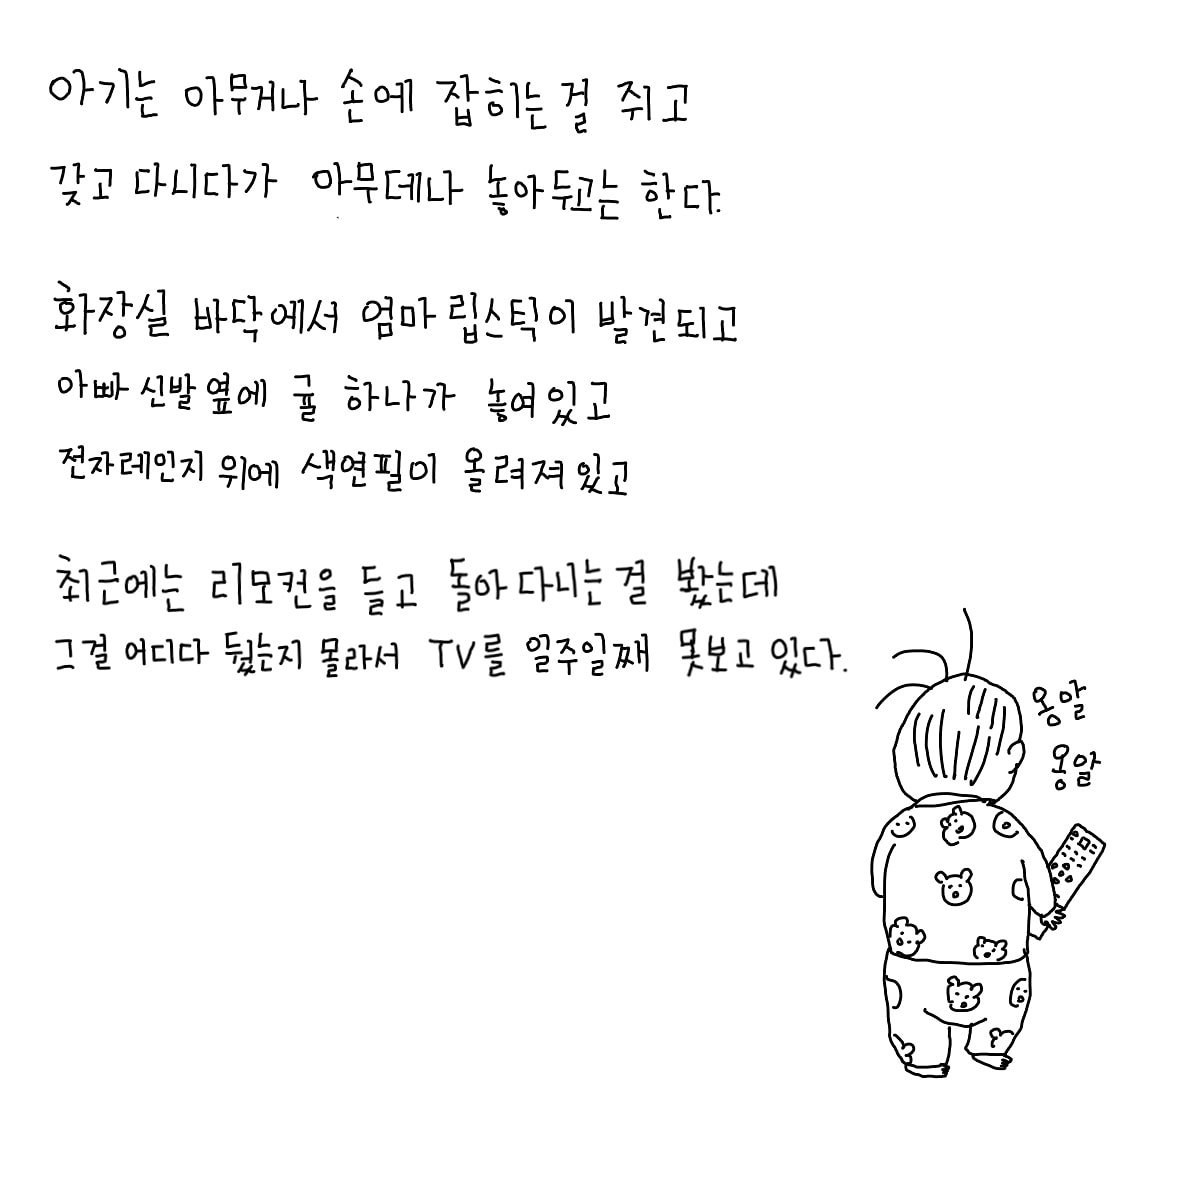 아기는 아무거나 손에 잡히는걸 쥐고
갖고 다시다가 아무데나 놓아두고는 한다.
화장실 바닥에서 엄마 립스틱이 발견되고
아빠 신발 옆에 귤 하나가 놓여있고
전자레인지 위에 색연필이 올려져있고
최근에는 리모컨을 들고 돌아다니는걸 봤는데
그걸 어디다 뒀는지 몰라서 TV를 일주일째 못보고 있다.
옹알
옹알